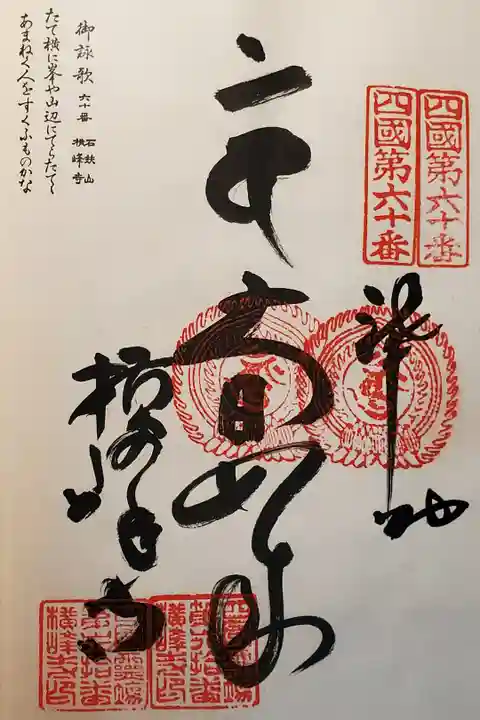 四國第六十番
四國第六十番
大日如来
横峰寺
御詠歌 六十番 石鈇山 横峰寺
たて横に峯や山辺にてらたてゝ
あまねく人をすくふものかな
横峰寺印
横峰寺印